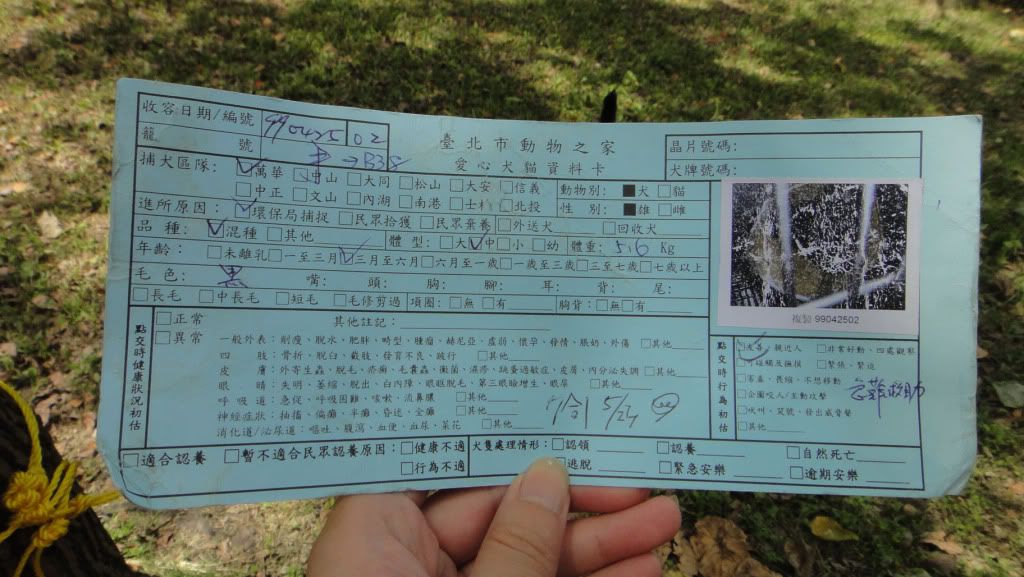 臺北市動物之家
愛心犬貓資料卡
收容日期/編號 990425 02
籠 號 →B38
晶片號碼:
犬牌號碼:
捕犬區隊: 萬華 中山 大同 松山 大安 信義
中正 文山 內湖 南港 士林 北投
動物別: 犬 貓
進所原因: 環保局捕捉 民眾拾獲 民眾棄養 外送犬 回收犬
性 別: 雄 雌
品 種: 混種 其他
體 型: 大 中 小 幼
體重: 5.6 Kg
年齡: 未離乳 一至三月 三月至六月 六月至一歲 一歲至三歲 三至七歲 七歲以上
毛 色: 黑 嘴: 頭: 胸: 腳: 耳: 背: 尾:
長毛 中長毛 短毛 毛修剪過 項圈: 無 有 胸背: 無 有
複製 99042502
點交時健康狀況初估
正常 其他註記:
異常 一般外表: 削瘦、脫水、肥胖、畸型、腫瘤、赫尼亞、虛弱、懷孕、發情、脹奶、外傷 其他
四 肢: 骨折、脫臼、截肢、發育不良、跛行 其他
皮 膚: 外寄生蟲、脫毛、疥癬、毛囊蟲、黴菌、濕疹、跳蚤過敏症、皮屑、內分泌失調 其他
眼 睛: 失明、萎縮、脫出、白內障、眼眶脫毛、第三眼瞼增生、眼屎 其他
呼 吸 道: 急促、呼吸困難、咳嗽、流鼻膿 其他
神經症狀: 抽搐、偏癱、半癱、昏迷、全癱 其他
消化道/泌尿道: 嘔吐、腹瀉、血便、血尿、菜花 其他
5/24
點交時行為初估
友善、親近人 非常好動、四處觀察
可碰觸及撫摸 緊張、緊迫
害羞、畏縮、不想移動
企圖咬人/主動攻擊
吠叫、哭號、發出威脅聲
其他
適合認養 暫不適合民眾認養原因: 健康不適
行為不適
犬隻處理情形: 認領 認養 自然死亡
逃脫 緊急安樂 逾期安樂